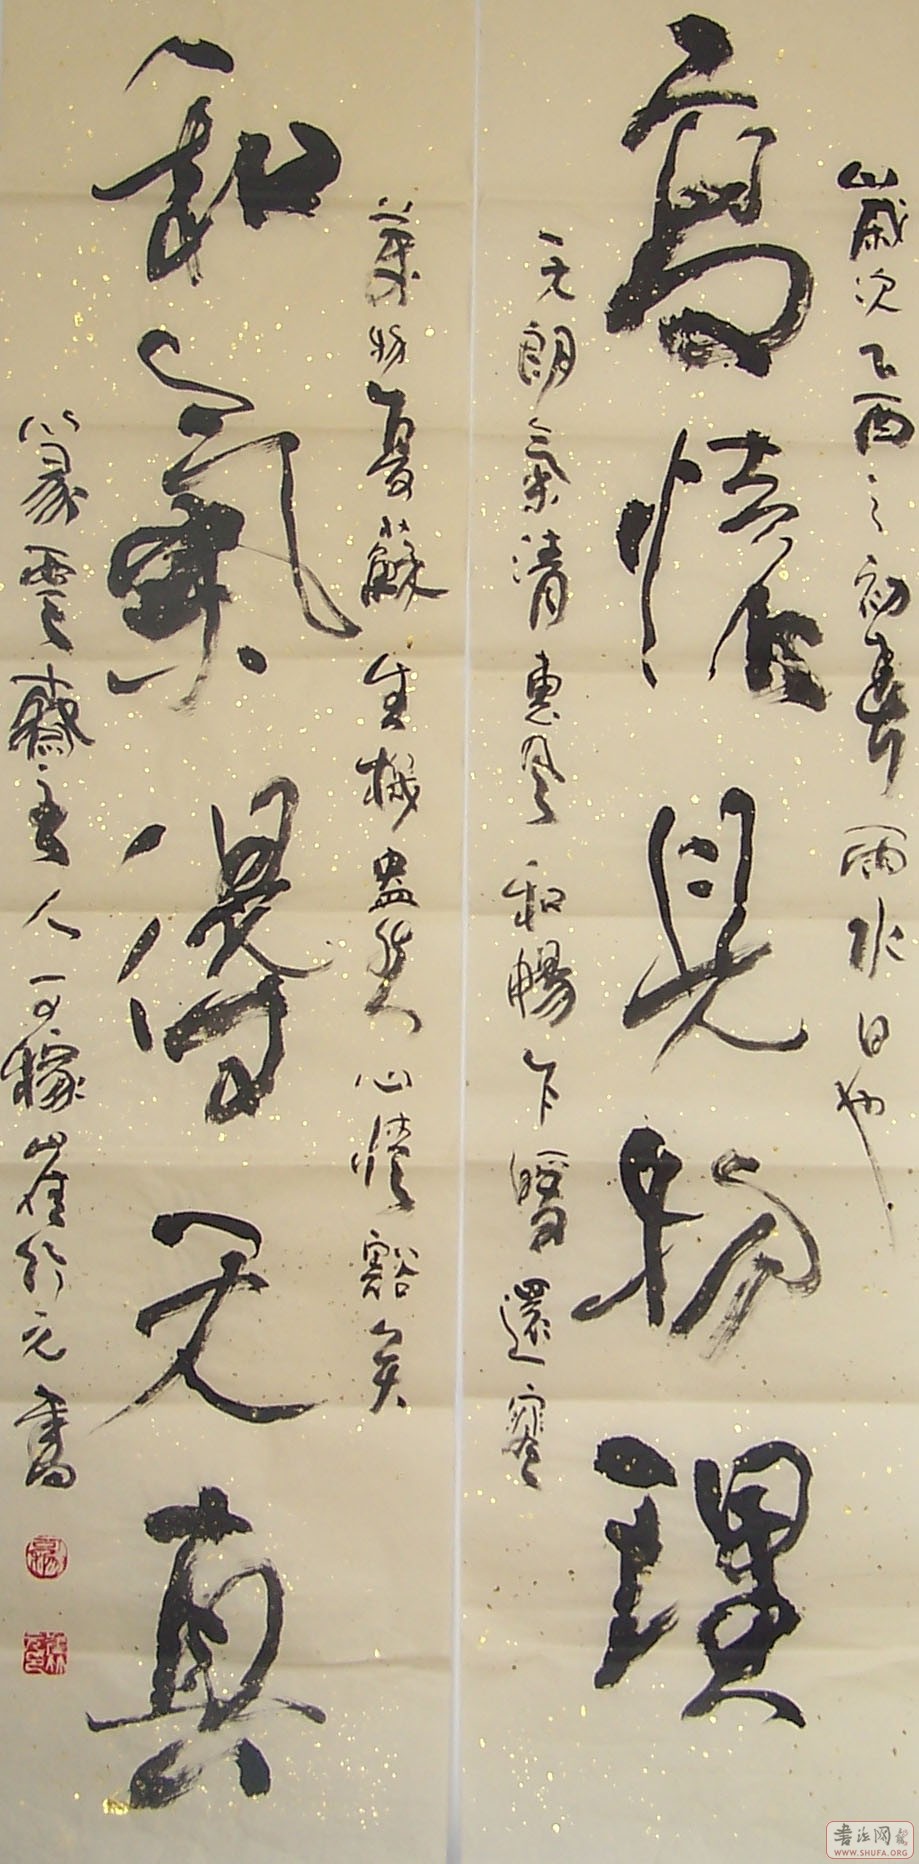 歲次乙酉之初春雨水日也
高情見物理
天朗氣清惠風和暢乍暖還寒
萬物復蘇生機盎然心情豁矣
和氣得天真
篆雲齋主人一可橼崔行元書
書法网
WWW.SHUFA.ORG